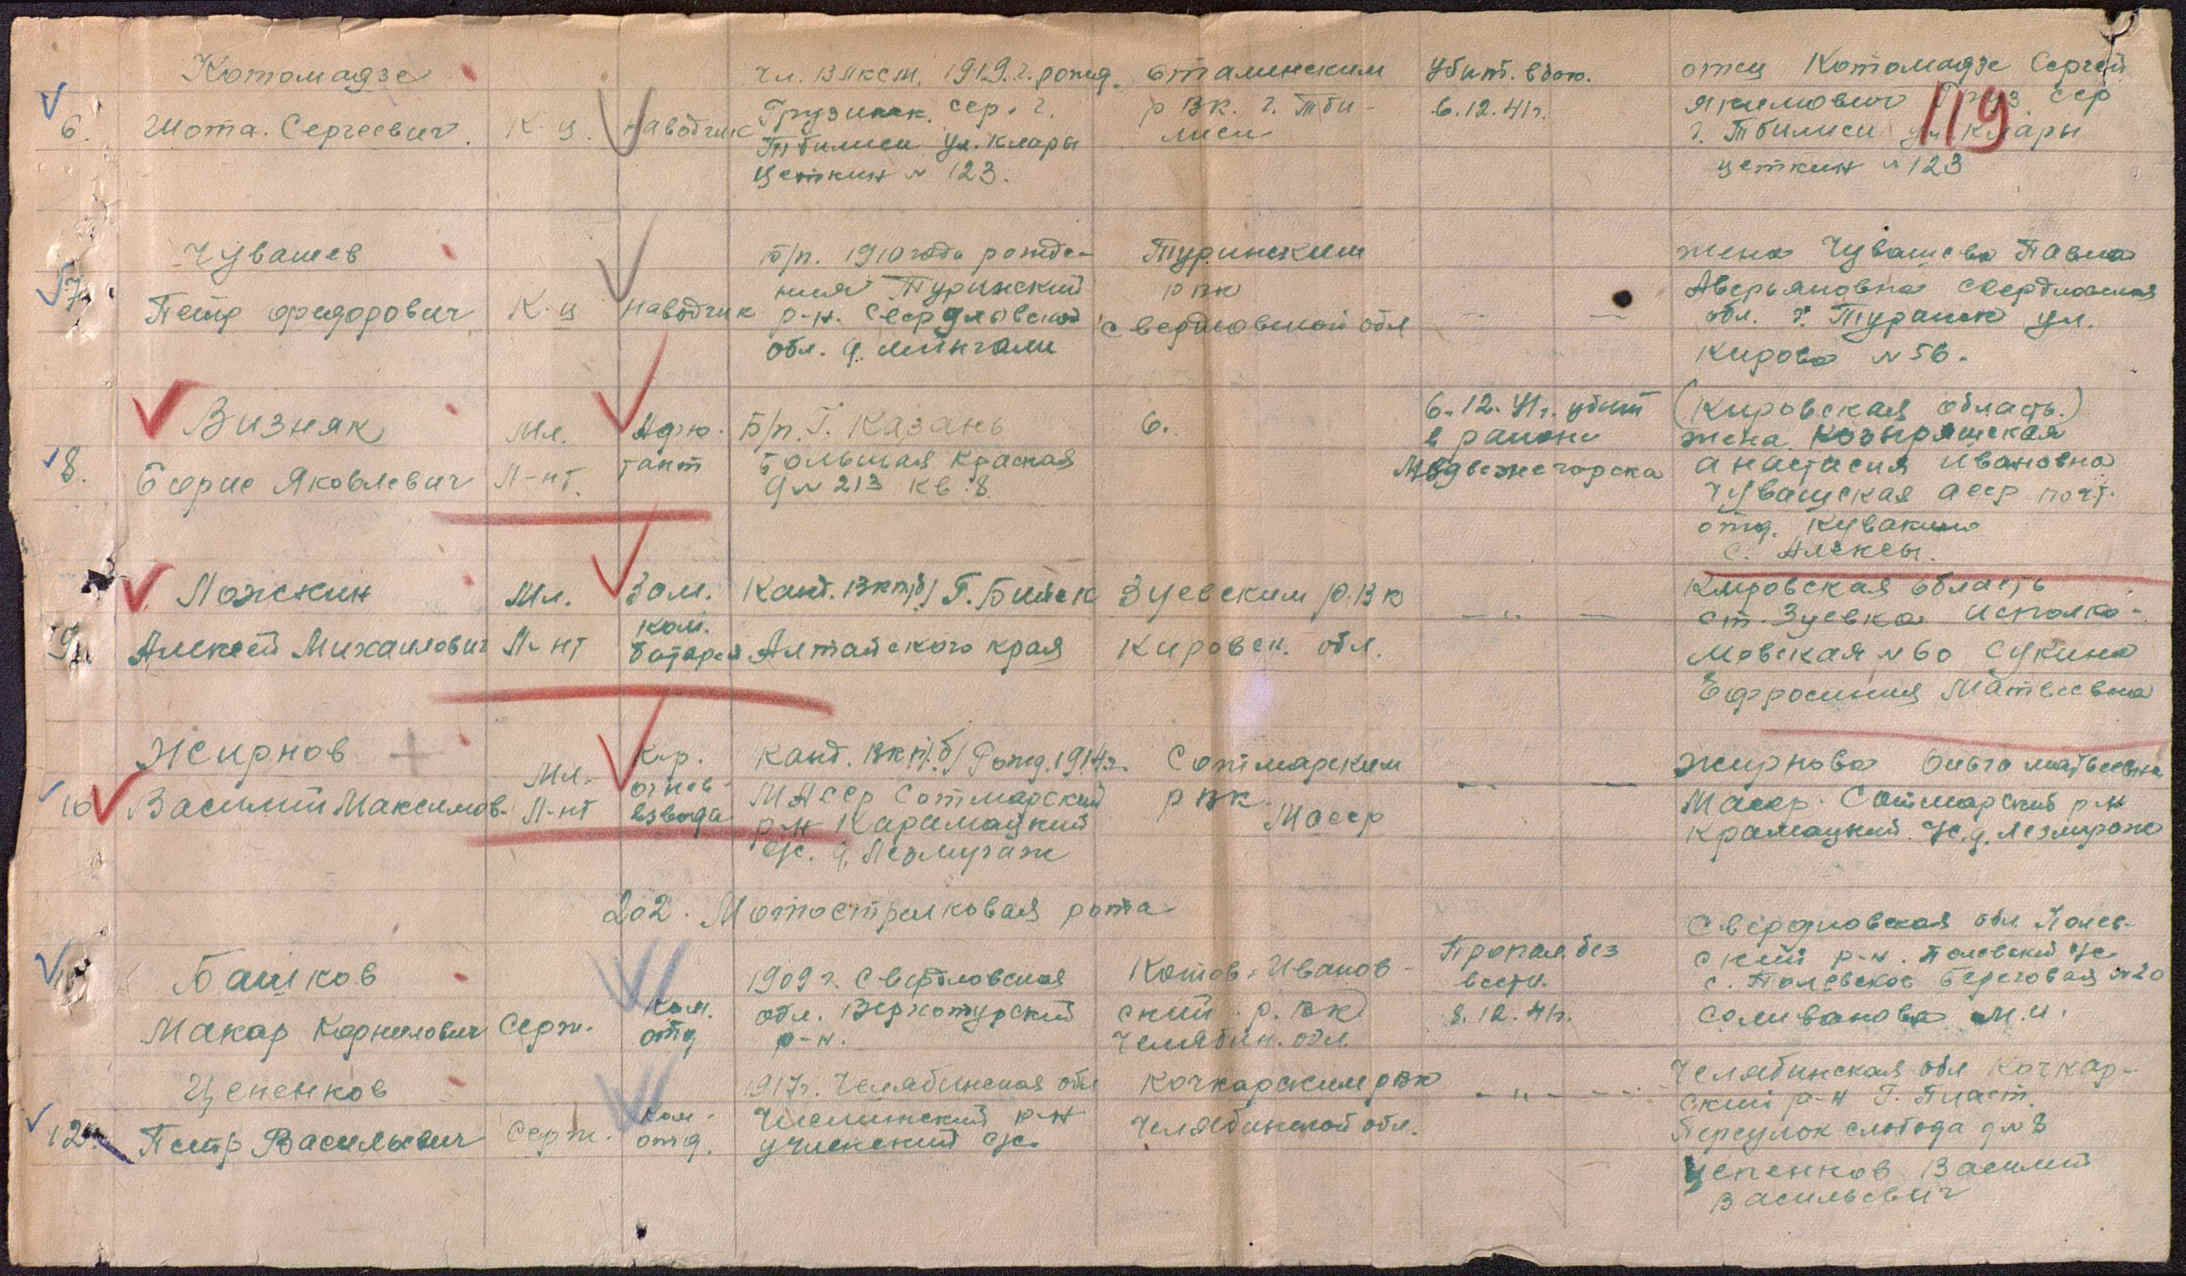 119
Котомадзе
6. Шота Сергеевич
К-ц.
наводчик
чл. ВЛКСМ. 1919 г. рожд.
Грузинск. сср. г.
Тбилиси ул. Клары
Цеткин № 123.
Сталинским
РВК. г. Тби-
лиси
Убит в бою.
6.12.41г.
отец Котомадзе Сергей
Груз сср
г. Тбилиси ул Клары
Цеткин № 123
Чувашев
7. Петр Федорович
К-ц
наводчик
б/п. 1910 года рожде-
ния Туринский
р-н. Свердловской
обл. д.
Туринским
РВК
Свердловской обл
— " —
жена Чувашева
Аверьяновна Свердловская
обл. г. Туринск ул.
Кирова № 56.
Визняк
8. Борис Яковлевич
Мл.
Л-нт.
Адъю-
тант
б/п. Г. Казань
Большая Красная
д № 213 кв. 8
6.
6.12.41г. убит
в районе
Медвежегорска
(Кировская область.)
жена
Анастасия Ивановна
Чувашская АССР почт.
отд. Кувакино
с. Алексы.
Ложкин
9. Алексей Михайлович
Мл.
Л-нт
Зам.
ком.
батареи
Канд. ВКП(б) Г. Бийск
Алтайского края
Зуевским Р.В К
Кировск. обл.
— " —
Кировская область
ст. Зуевка Исполко-
мовская № 60 Сукина
Ефросиния Матвеевна
Жирнов +
10 Василий Максимов.
Мл.
Л-нт
К-р.
огнев.
взвода
Канд. ВКП(б) Рожд. 1914г.
МАССР
р-н
с/с. д.
РВК.
МАССР
— " —
Жирнова Ольга Матвеевна
МАССР. р-н
с/с. д.
202. Мотострелковая рота
Башков
11 Макар Корнилович
Серж.
Ком.
отд
1909 г. Свердловская
обл. Верхотурский
р-н.
Катав-Иванов-
ский р. ВК
Челябин. обл.
Пропал без
вести.
8.12.41г.
Свердловская обл. Полев-
ской р-н. Полевский с/с
с. Полевское Береговая № 20
Селиванова М.И.
Цепенков
12. Петр Васильевич
Серж.
Ком.
отд.
1917г. Челябинская обл
р-н
с/с.
Кочкарским РВК
Челябинской обл.
— " —
Челябинская обл Кочкар-
ский р-н Г. Пласт.
Переулок слобода д № 8
Цепенков Василий
Васильевич